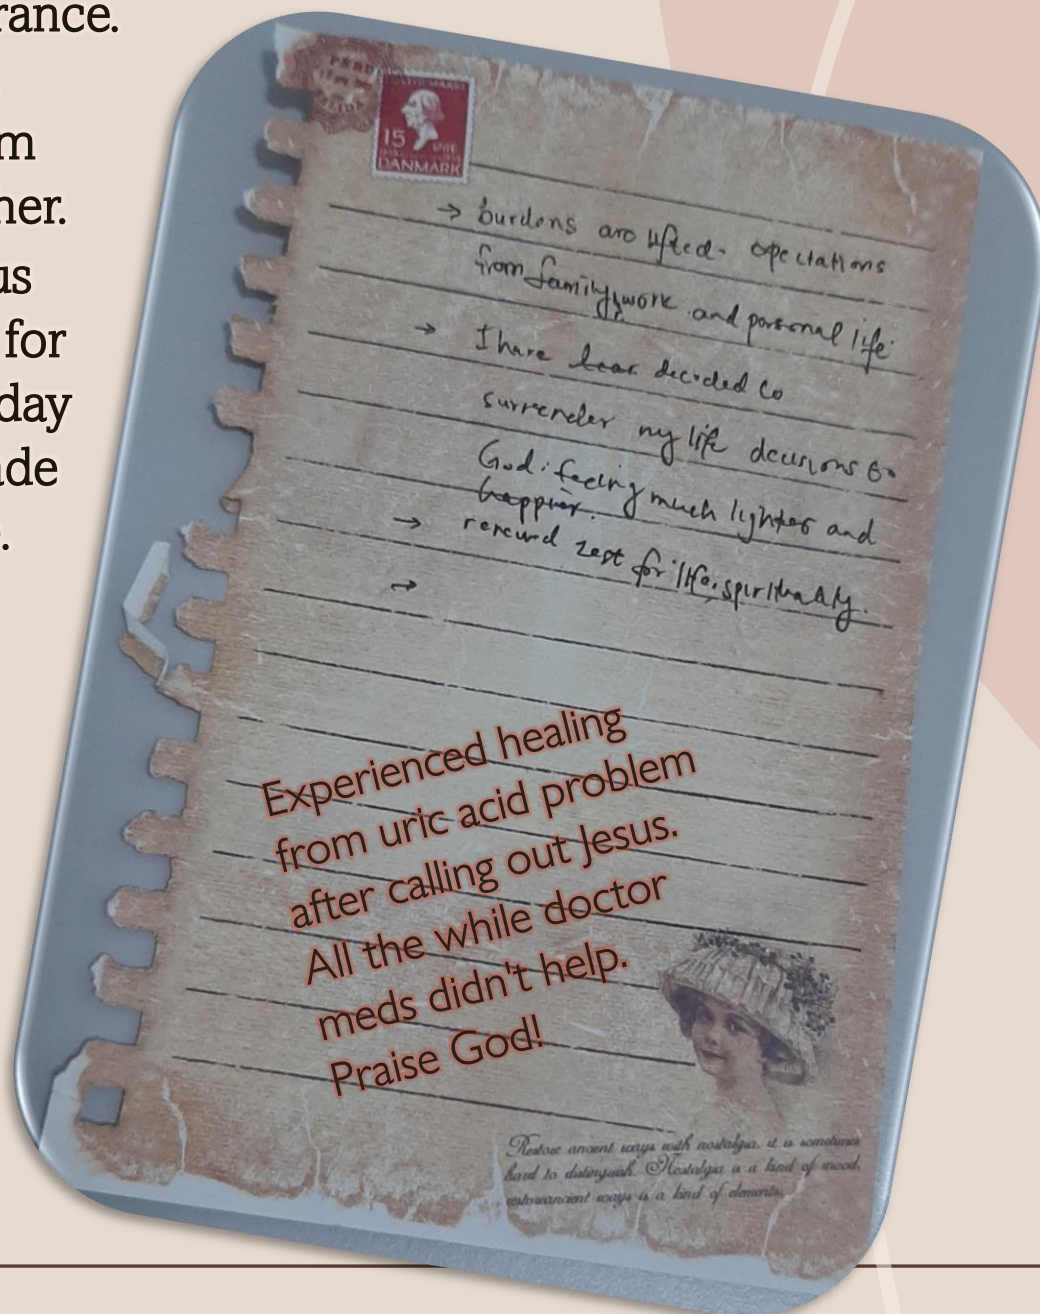 rance.
m
her.
us
for
day
ade
.
PERU
15 ØRE
DANMARK
→ burdens are lifted - expectations
from family, work and personal life
→ I have decided to
surrender my life decisions to
God. feeling much lighter and
happier.
→ renewed zest for life, spiritually.
→
Experienced healing
from uric acid problem
after calling out Jesus.
All the while doctor
meds didn't help.
Praise God!
Restore ancient ways with nostalgia, it is sometimes
hard to distinguish. Nostalgia is a kind of mood,
restoreancient ways is a kind of elements.